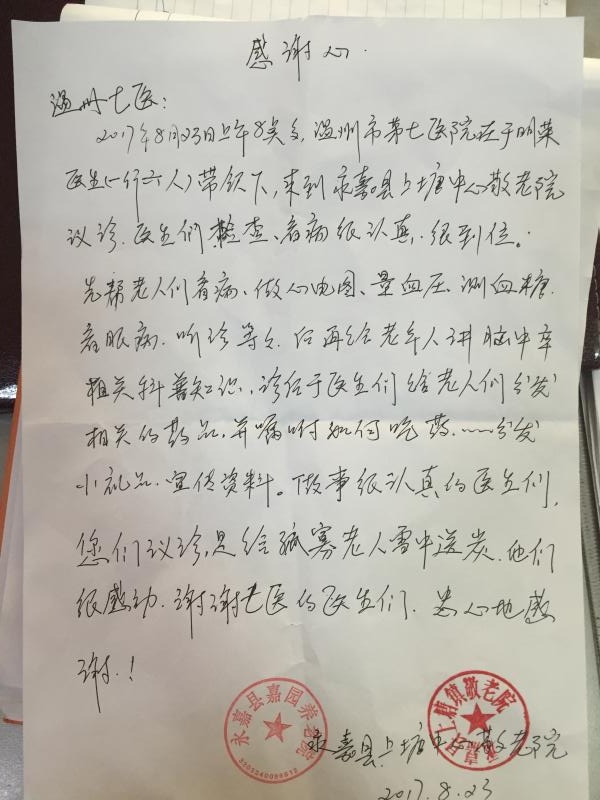 感谢心.
温州七医:
2017年8月23日上午8类多,温州市第七医院在于明荣
医生(一行六人)带领下,来到永嘉县上塘中心敬老院
议诊.医生们检查、看病很认真,很到位。
先帮老人们看病、做心电图、量血压、测血糖.
看眼病.听诊等等.后再给老年人讲脑中卒
相关科普知识,诊后于医生们给老人们分发
相关的药品,并嘱咐如何吃药……分发
小礼品.宣传资料。做事很认真的医生们,
您们议诊,是给孤寡老人雪中送炭.他们
很感动.谢谢七医的医生们.忠心地感
谢.!
永嘉县嘉园养老院
永嘉县上塘镇敬老院
永嘉县上塘中心敬老院
2017.8.23